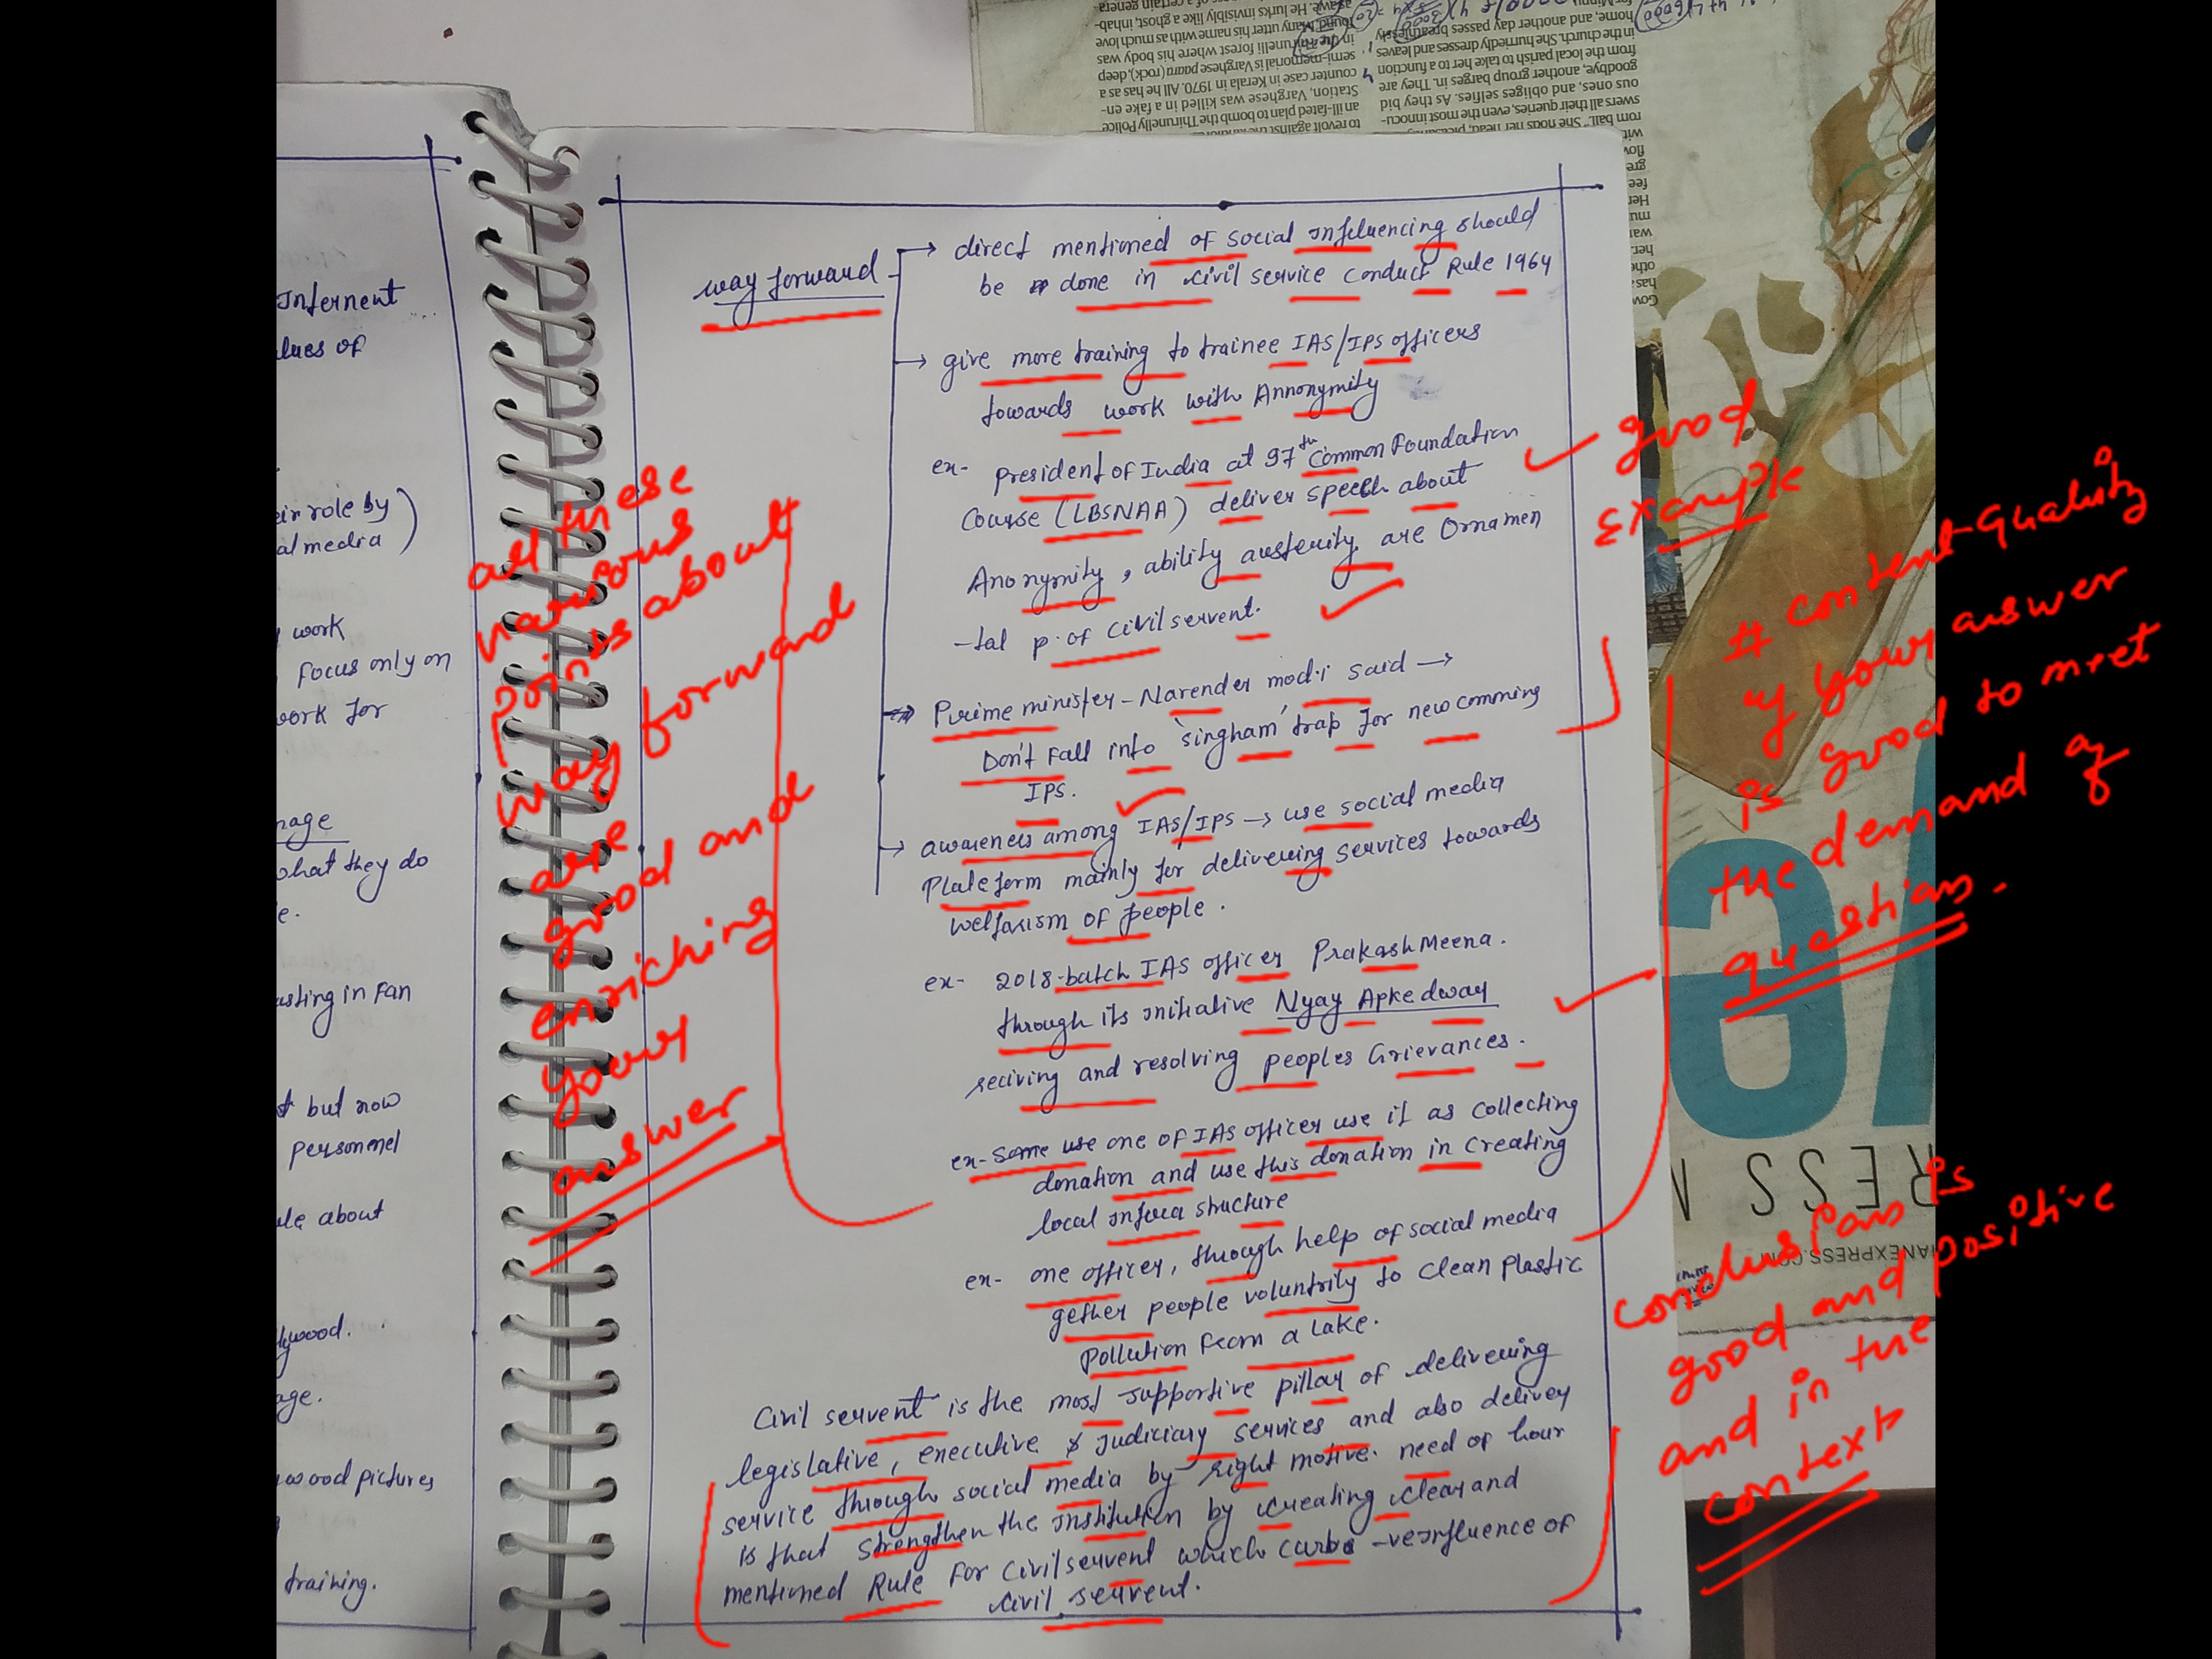 Internent
lues of
eir role by
al media)
work
focus only on
work for
nage
what they do
e.
asting in Fan
t but now
personnel
ule about
lywood.
age.
wood pictures
training.
way forward
→ direct mentioned of social influencing should
be done in civil service conduct Rule 1964
→ give more training to trainee IAS/IPS officers
towards work with Annonymity
ex- president of India at 97th Common Foundation
Course (LBSNAA) deliver speech about
Anonymity, ability austerity are Ornamen
-tal p. of civil servent.
→ Prime minister - Narender modi said →
Don't Fall into 'singham' trap for newcomming
IPS.
→ awareness among IAS/IPS → use social media
Plateform mainly for delivering services towards
welfarism of people.
ex- 2018-batch IAS officer Prakash Meena.
through its initiative Nyay Apke dway
reciving and resolving peoples Grievances.
ex- Some use one of IAS officer use it as collecting
donation and use this donation in creating
local infora structure
ex- one officer, through help of social media
gether people voluntrily to clean plastic
Pollution from a Lake.
Civil servent is the most supportive pillar of delivering
legislative, executive & judiciary services and also delivey
service through social media by right motive. need of hour
is that strengthen the institution by creating clear and
mentioned Rule for civil servent which curbs -ve influence of
civil servent.
all these
various
points about
way forward
are
good and
enriching
your
answer
good
example
# content-quality
of your answer
is good to meet
the demand of
question.
conclusion is
good and positive
and in the
context
asawe. He lurks invisibly like a ghost, inhab-
found. Many utter his name with as much love
in the Thirunelli forest where his body was
semi-memorial is Varghese paara (rock), deep
counter case in Kerala in 1970. All he has as a
Station, Varghese was killed in a fake en-
an ill-fated plan to bomb the Thirunelly Police
home, and another day passes breathlessly
in the church. She hurriedly dresses and leaves
from the local parish to take her to a function
goodbye, another group barges in. They are
ous ones, and obliges selfies. As they bid
swers all their queries, even the most innocu-
RESS